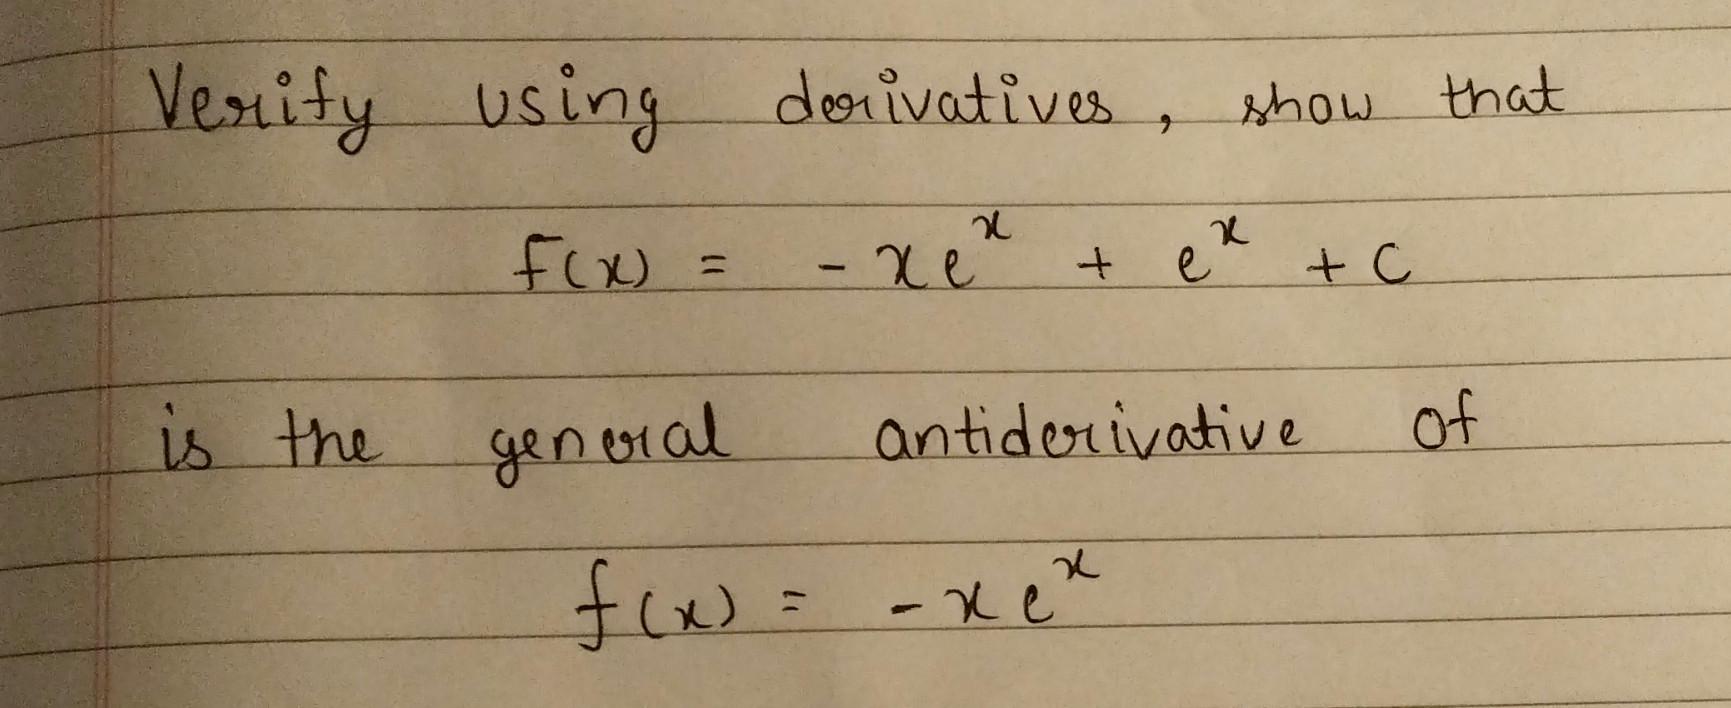 Verify using derivatives, show that
F(x) = - xeˣ + eˣ + C
is the general antiderivative of
f(x) = - xeˣ